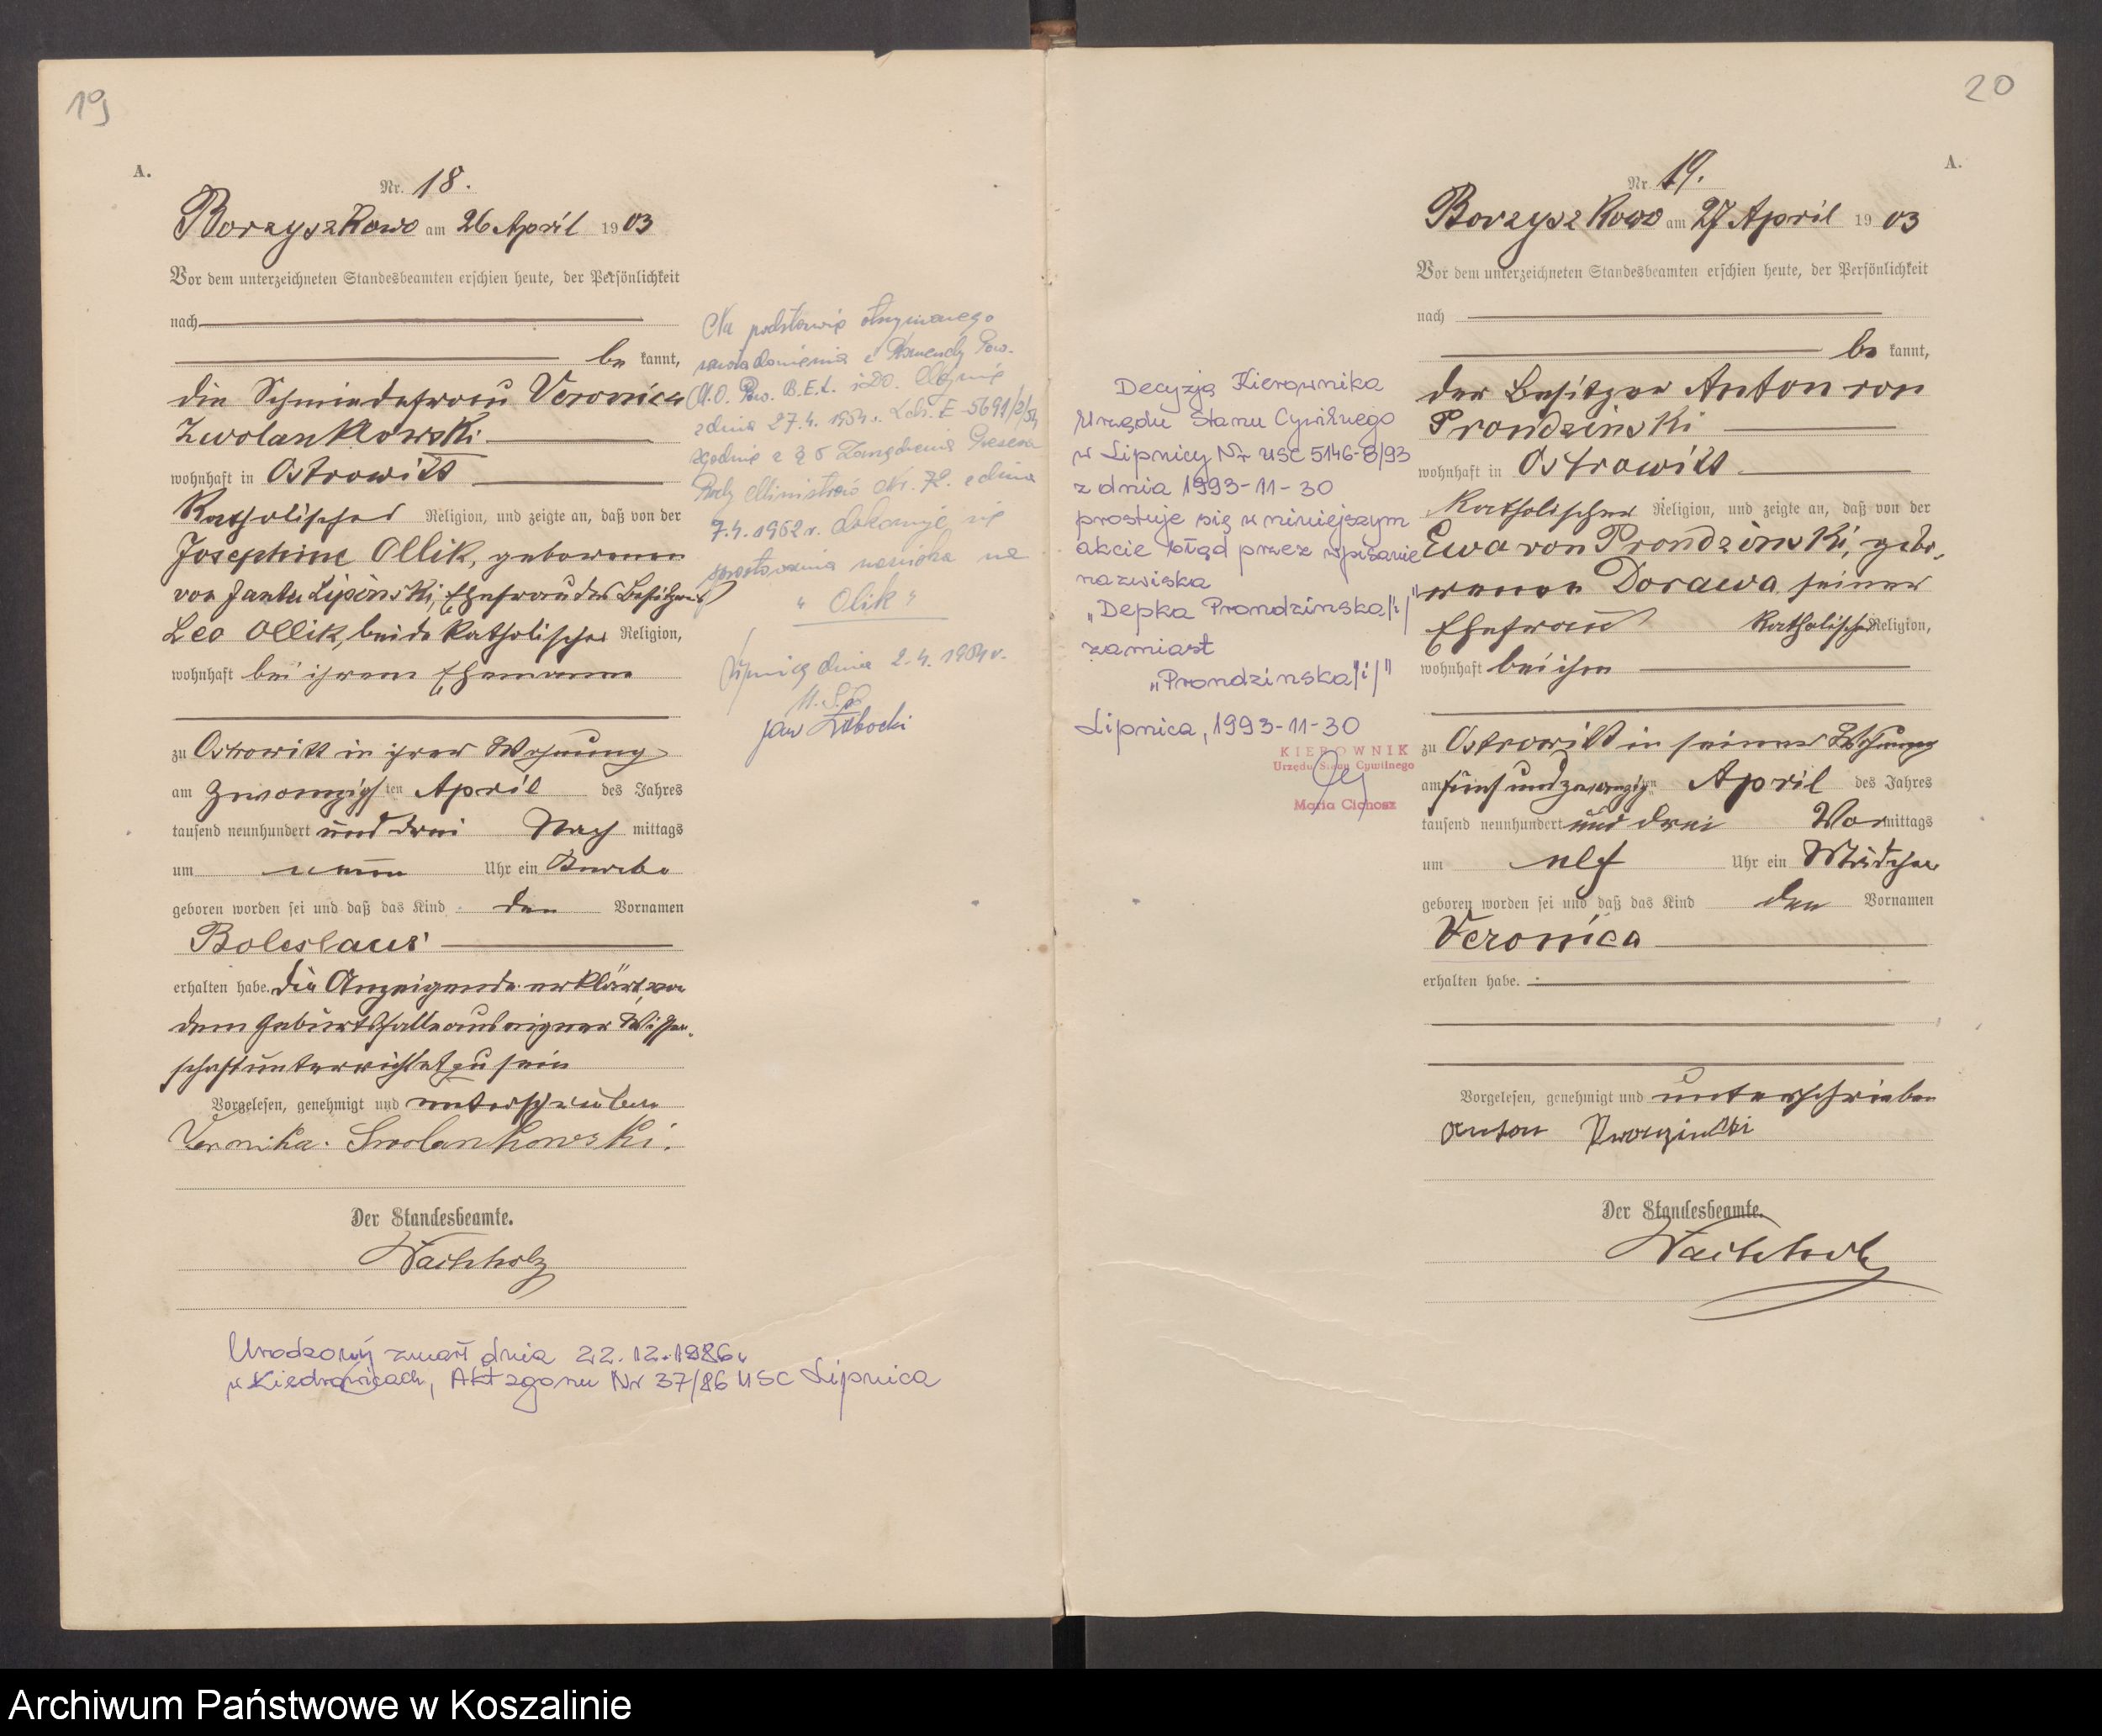 19
A.
Nr. 18.
Borzyszkowo am 26 April 1903
Vor dem unterzeichneten Standesbeamten erschien heute, der Persönlichkeit
nach
be kannt,
die Schmiedefrau Veronica
Zwolankowski
wohnhaft in Ostrowitt
Katholischer Religion, und zeigte an, daß von der
Josephine Ollik, geborenen
von Janta Lipinski, Ehefrau des Besitzers
Leo Ollik, beide katholischer Religion,
wohnhaft bei ihrem Ehemanne
zu Ostrowitt in ihrer Wohnung
am zwanzigsten April des Jahres
tausend neunhundert und drei Nach mittags
um neun Uhr ein Knabe
geboren worden sei und daß das Kind den Vornamen
Boleslaus
erhalten habe. Die Anzeigende erklärt, von
dem Geburtsfalle aus eigner Wissen-
schaft unterrichtet zu sein
Vorgelesen, genehmigt und unterschrieben
Veronika. Swolankowski.
Der Standesbeamte.
Wachholz
Na podstawie otrzymanego
zawiadomienia z Komendy Pow.
M.O. Pow. B.E.L. i DO.
z dnia 27.4. 1954. L.dz. E-5691/2/54
zgodnie z § 5 Zarządzenia Prezesa
Rady Ministrów Nr. 72. z dnia
7.4.1952 r. dokonuje się
sprostowania nazwiska na
" Olik "
Lipnica dnia 2.4.1954 r.
Jan
Urodzony zmarł dnia 22.12.1986 r
w Kiedrowicach, Akt zgonu Nr 37/86 USC Lipnica
20
A.
Nr. 19.
Borzyszkowo am 27 April 1903
Vor dem unterzeichneten Standesbeamten erschien heute, der Persönlichkeit
nach
be kannt,
der Besitzer Anton von
Prondzinski
wohnhaft in Ostrowitt
katholischer Religion, und zeigte an, daß von der
Ewa von Prondzinski, gebo-
renen Dorawa seiner
Ehefrau katholischer Religion,
wohnhaft bei ihm
zu Ostrowitt in seiner Wohnung
am fünf und zwanzigsten April des Jahres
tausend neunhundert und drei Vormittags
um elf Uhr ein Mädchen
geboren worden sei und daß das Kind den Vornamen
Veronica
erhalten habe.
Vorgelesen, genehmigt und unterschrieben
Anton
Der Standesbeamte.
Wachholz
Decyzją Kierownika
Urzędu Stanu Cywilnego
w Lipnicy Nr USC 5146-8/93
z dnia 1993-11-30
prostuje się w niniejszym
akcie błąd przez wpisanie
nazwiska
"Depka Prondzinska/i/"
zamiast
"Prondzinska/i/"
Lipnica, 1993-11-30
KIEROWNIK
Urzędu Stanu Cywilnego
Maria Cichosz
Archiwum Państwowe w Koszalinie